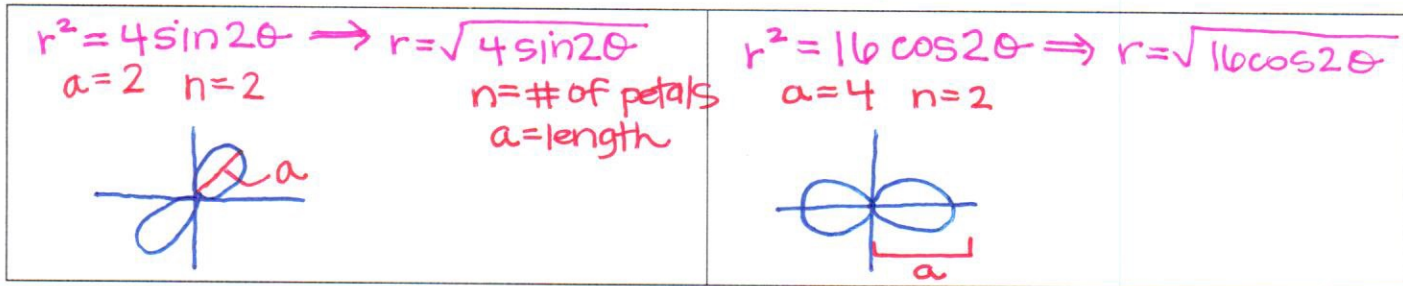 r² = 4 sin2θ ⟹ r = √4 sin2θ
a=2 n=2
n=# of petals
a=length
a
r² = 16 cos2θ ⟹ r = √16cos2θ
a=4 n=2
a